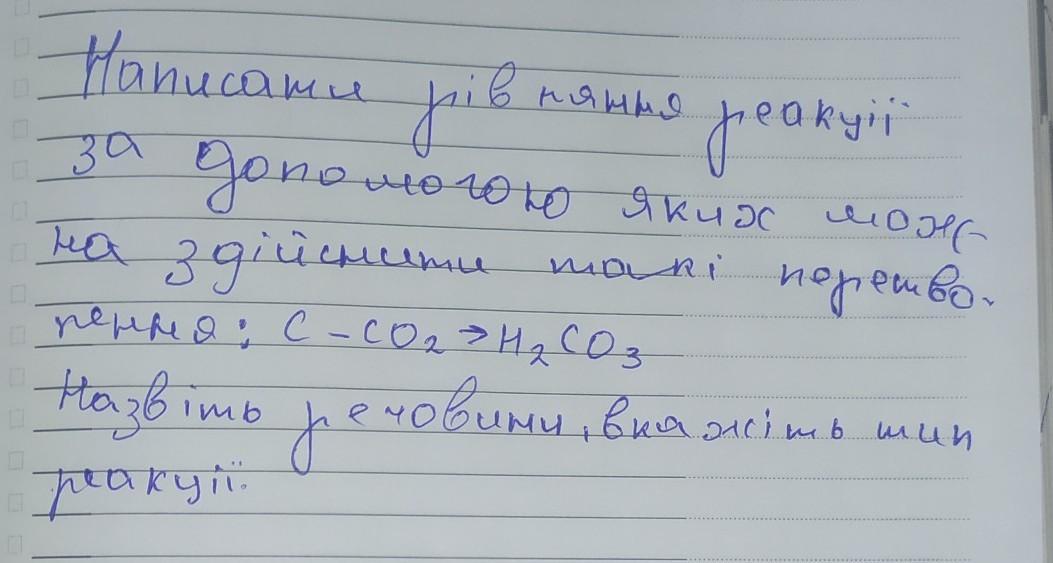 Написати рівняння реакції
за допомогою яких мож-
на здійснити такі перетво-
рення: C - CO₂ → H₂CO₃
Назвіть речовини, вкажіть тип
реакції.